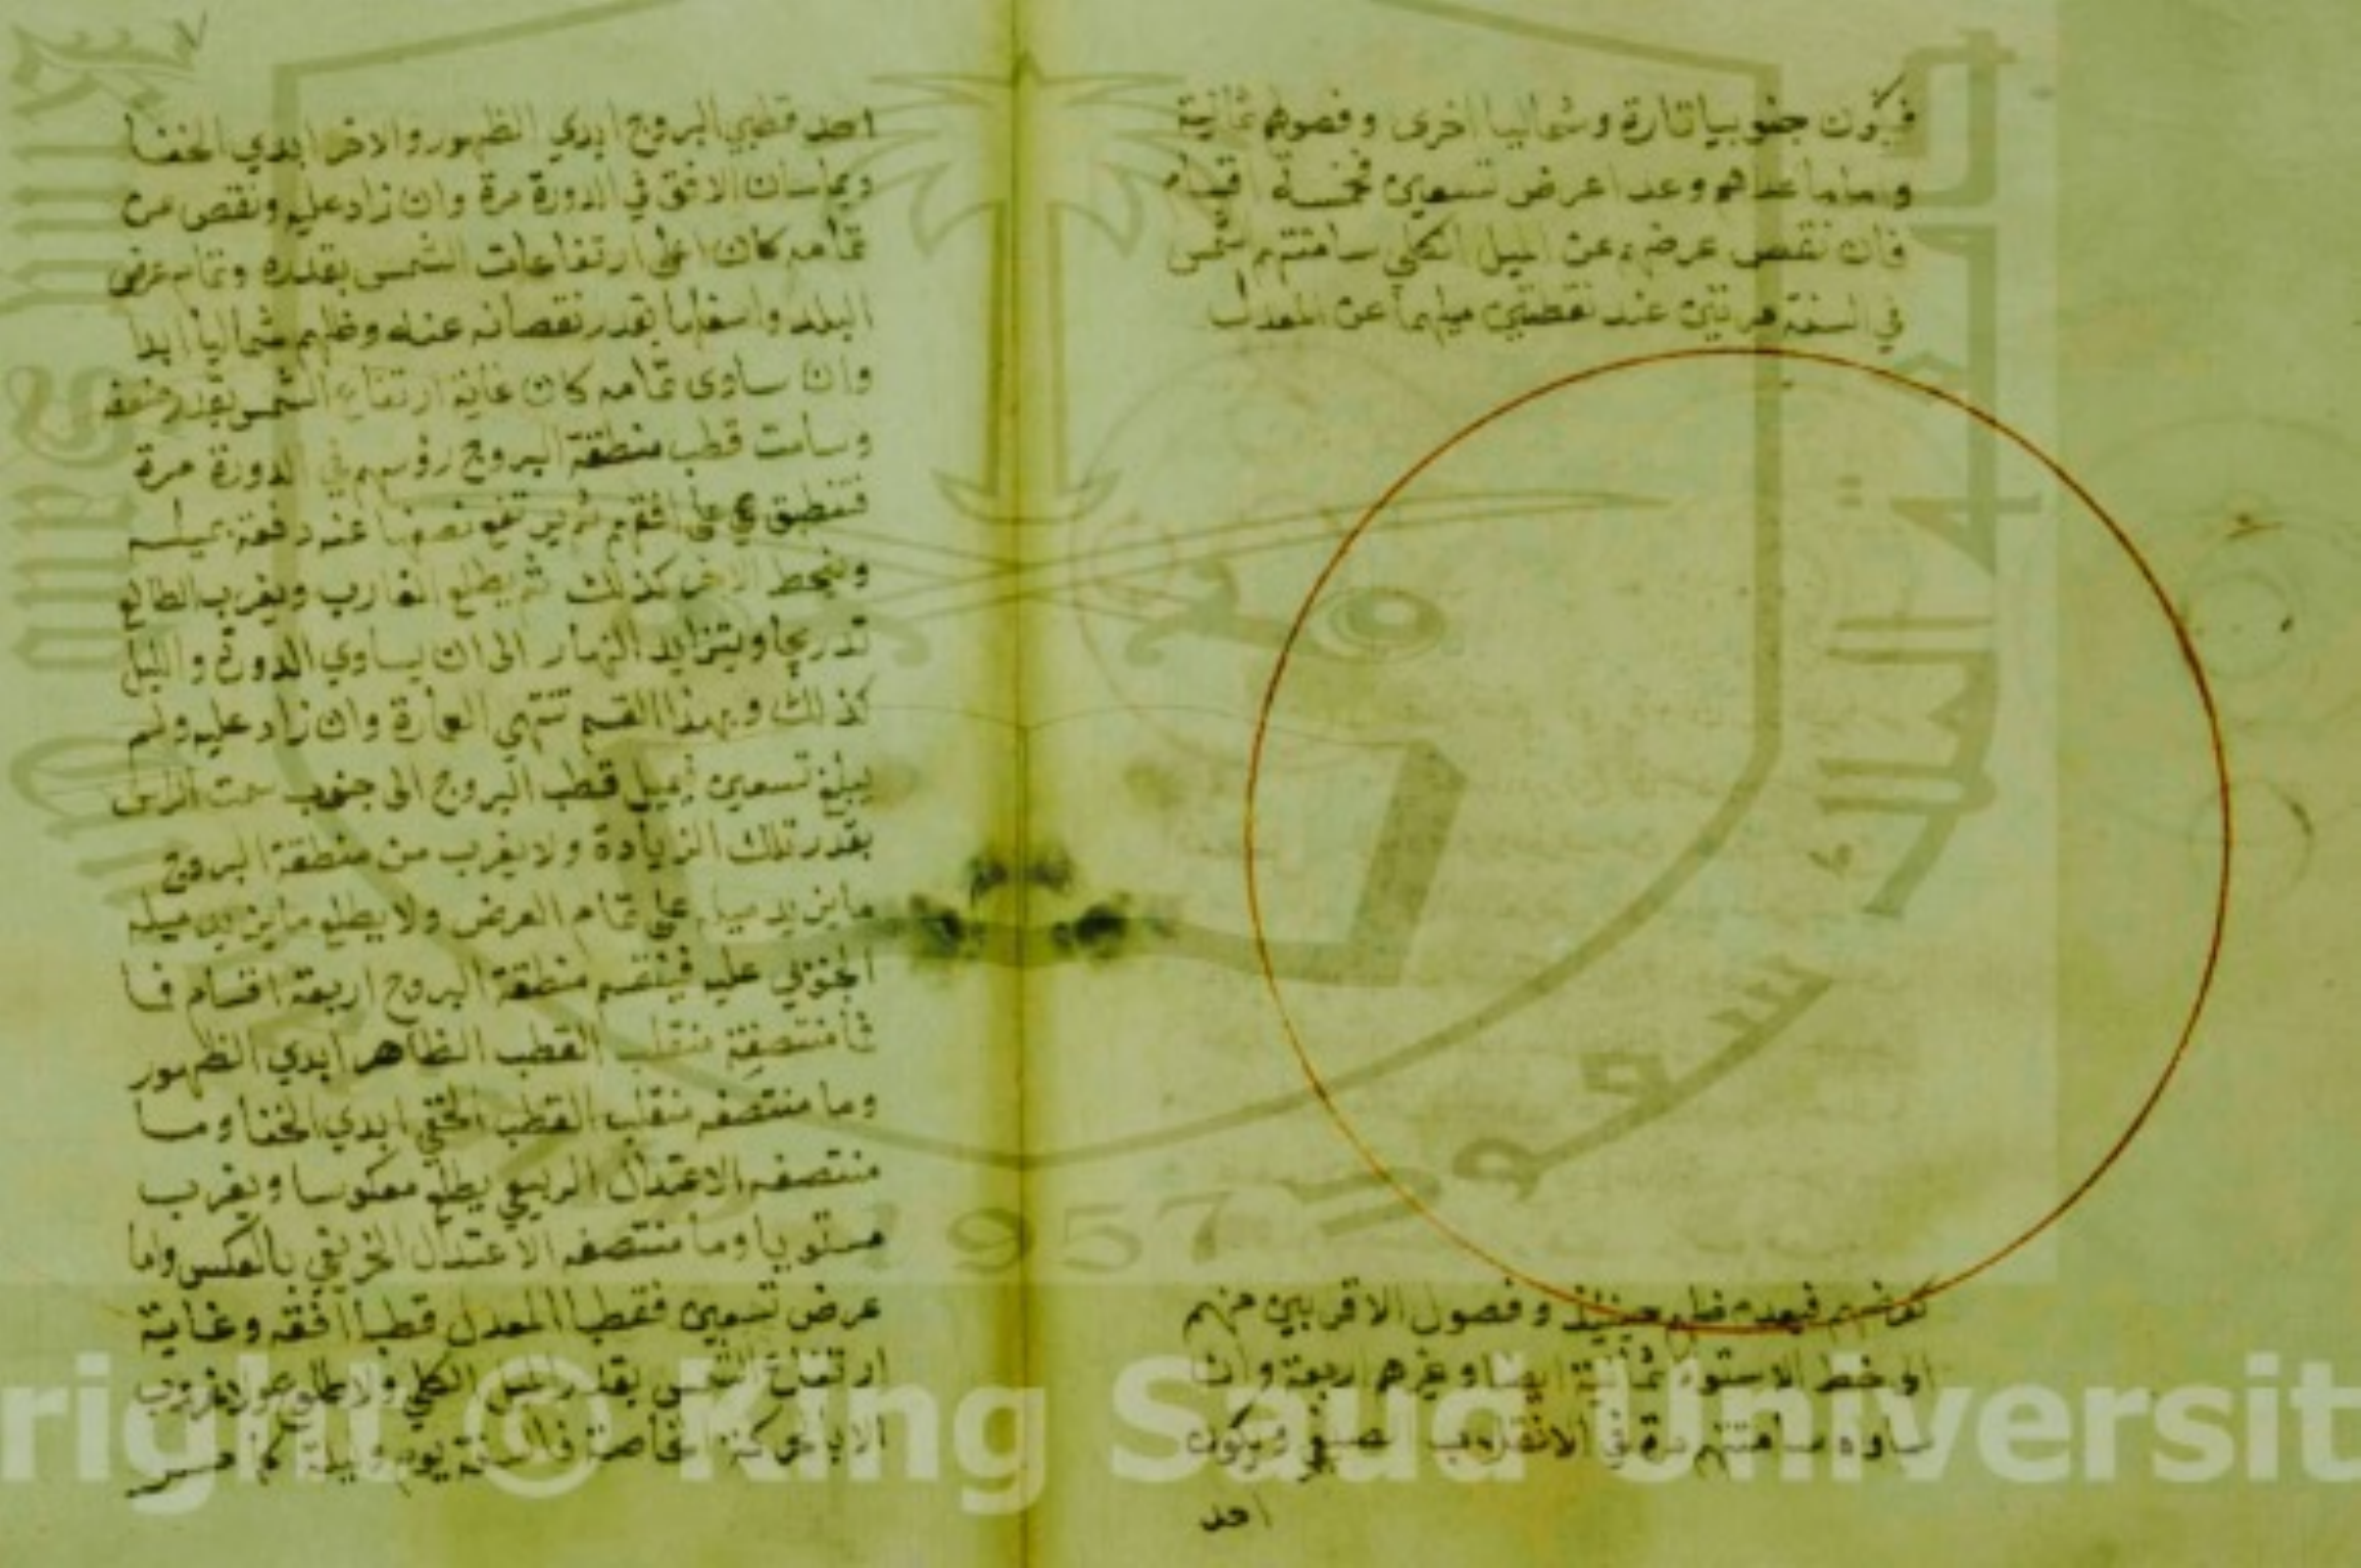 فيكون جنوبيا تارة وشماليا اخرى وفصولهم ثمانية
وما عداهم وعدا عرض تسعين فخمسة اقسام
فان نقص عرضه عن الميل الكلي سامتتهم الشمس
في السنة مرتين عند نقطتين ميلهما عن المعدل
كعرضهم فيعدم ظلهم حينئذ وفصول الاقربين منهم
الى خط الاستواء ثمانية ايضا وغيرهم اربعة وان
ساواه سامتتهم في الانقلاب الصيفي ويكون
احد
احد قطبي البروج ابدي الظهور والاخر ابدي الخفا
ويماسان الافق في الدورة مرة وان زاد عليه ونقص عن
تمامه كان اعلى ارتفاعات الشمس بقدره وتمام عرض
البلد واسفلها بقدر نقصانه عنه وظلهم شماليا ابدا
وان ساوى تمامه كان غاية ارتفاع الشمس بقدر ضعفه
وسامت قطب منطقة البروج رؤسهم في الدورة مرة
فتنطبق هي على افقهم ثم يرتفع نصفها عنه دفعة بميله
وينحط الاخر كذلك ثم يطلع الغارب ويغرب الطالع
تدريجا ويتزايد النهار الى ان يساوي الدورة والليل
كذلك وبهذا القسم تنتهي العمارة وان زاد عليه ولم
يبلغ تسعين يميل قطب البروج الى جنوب سمت الراس
بقدر تلك الزيادة ولا يغرب من منطقة البروج
ما يزيد ميله على تمام العرض ولا يطلع ما يزيد ميله
الجنوبي عليه فينقسم منطقة البروج اربعة اقسام فا
منتصفة منقلب القطب الظاهر ابدي الظهور
وما منتصفه منقلب القطب الخفي ابدي الخفا وما
منتصفه الاعتدال الربيعي يطلع معكوسا ويغرب
مستويا وما منتصفه الاعتدال الخريفي بالعكس واما
عرض تسعين فقطبا المعدل قطبا افقه وغاية
ارتفاع الشمس بقدر الميل الكلي ولا طلوع ولا غروب
الا بالحركة الخاصة فالسنة يوم وليلة